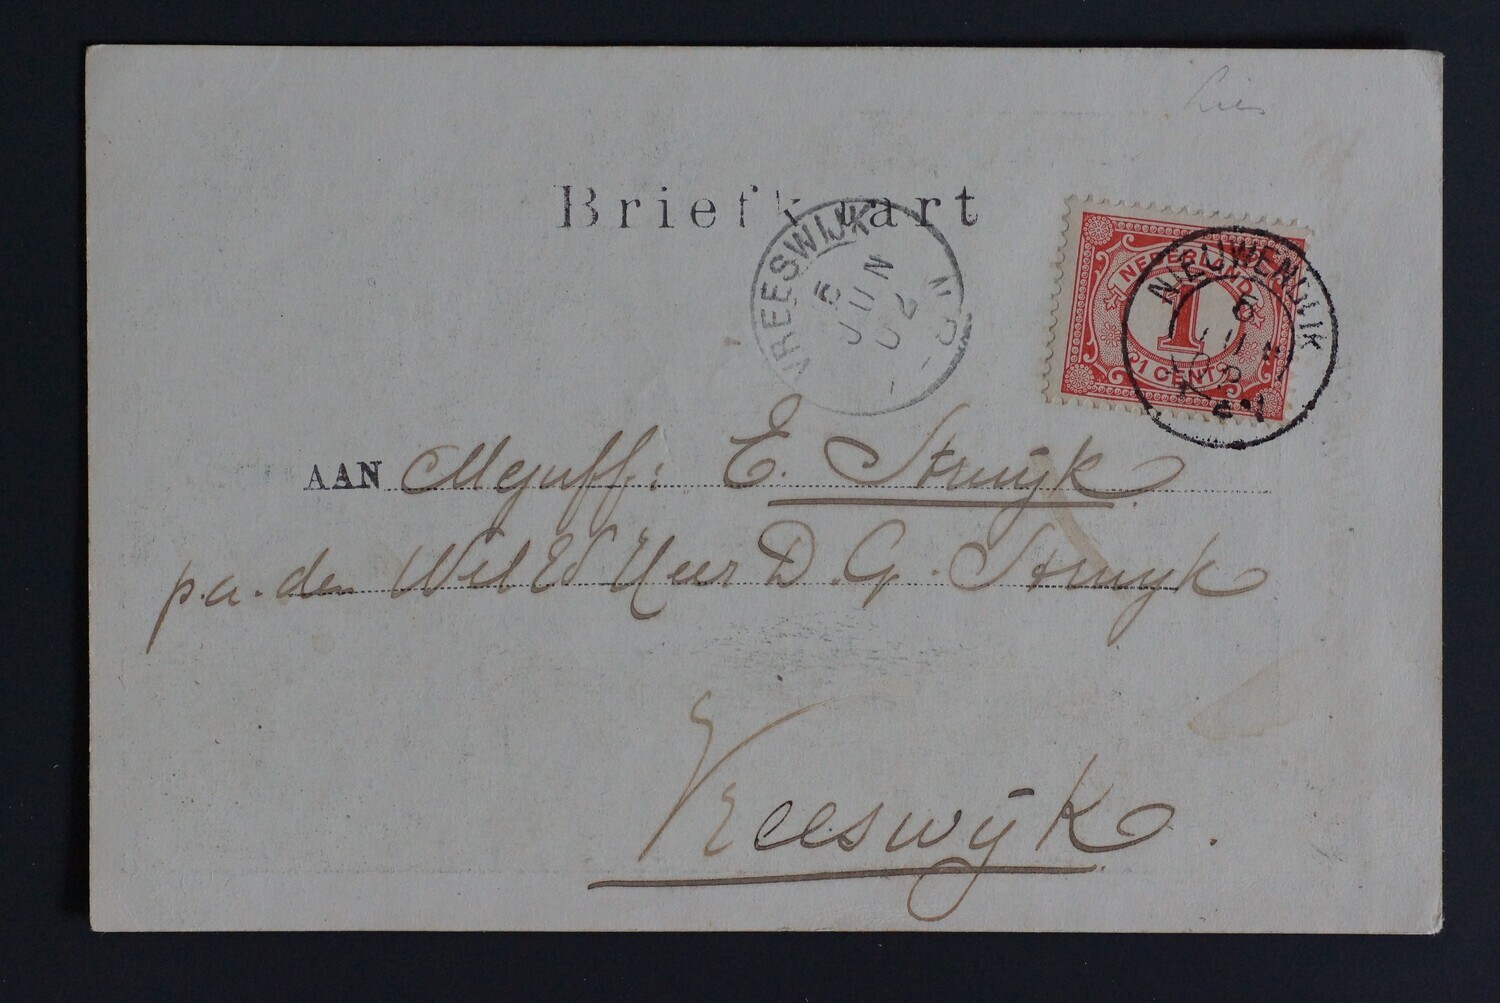 Briefkaart
VREESWIJK
5 JUN 02
8-N
NEDERLAND
1
1 CENT
NIEUWENDIJK
AAN Mejuff: E. Struijk
p.a. den WelEd Heer D. G. Struijk
Vreeswijk.